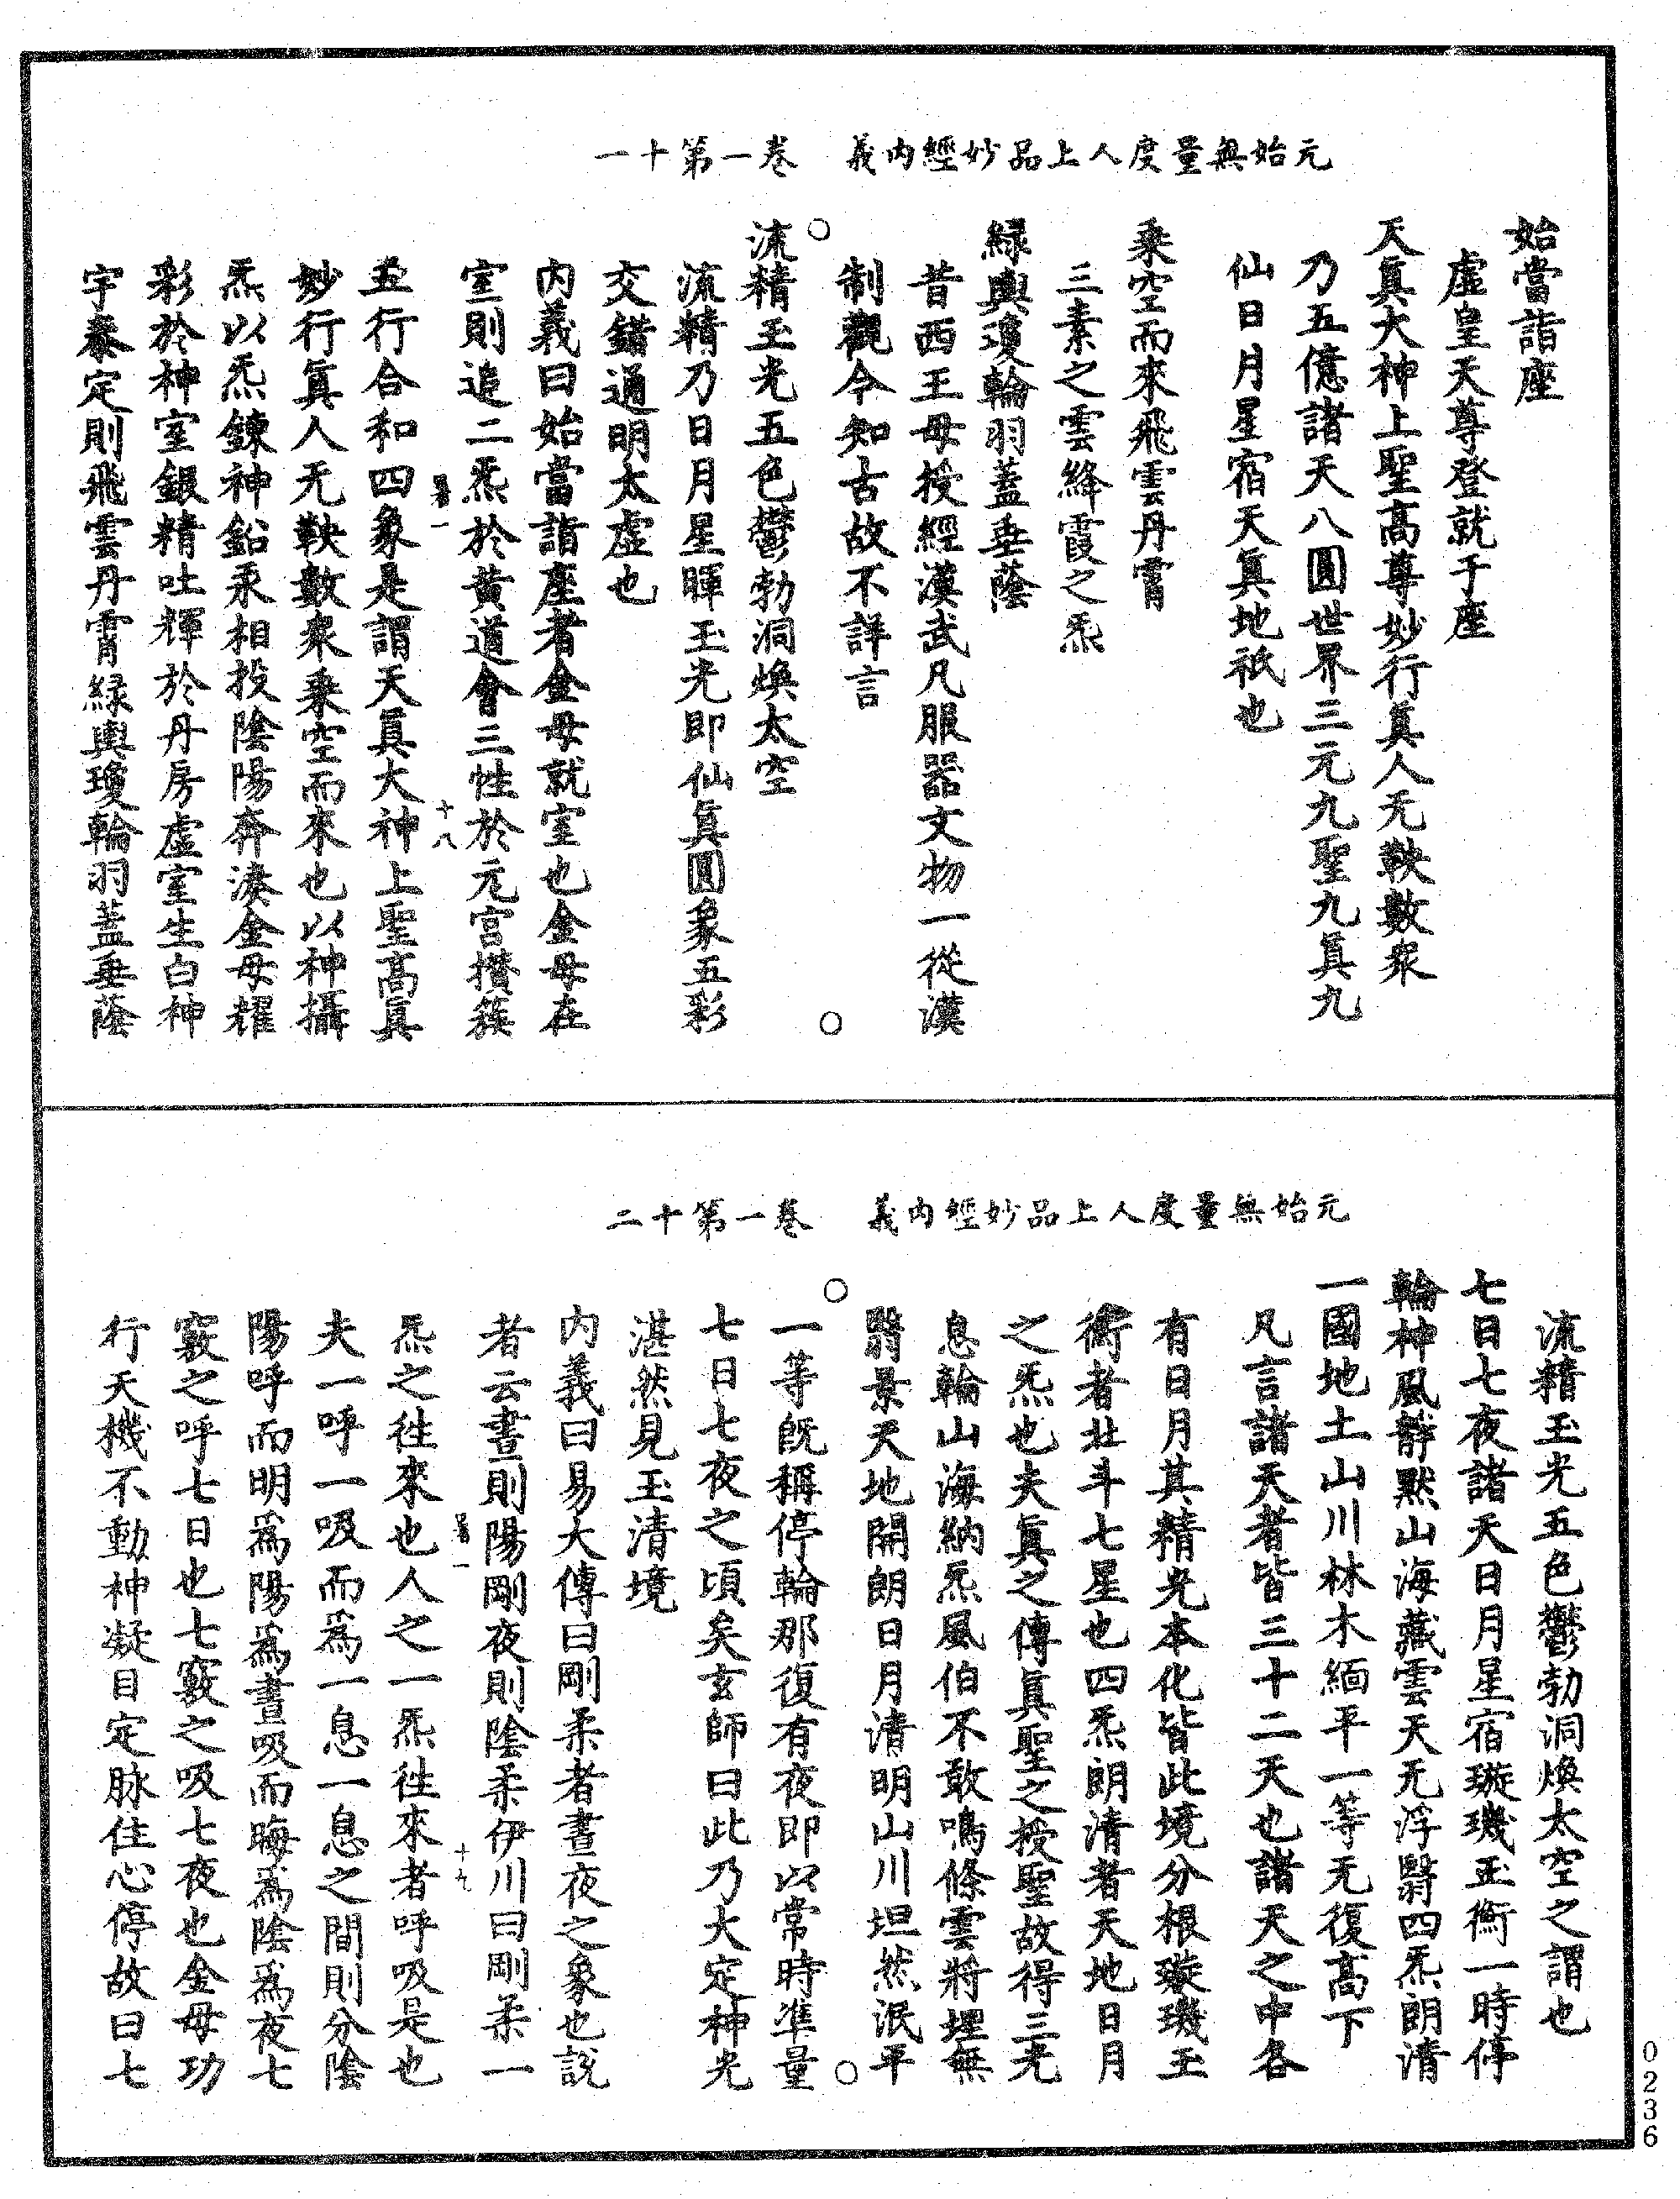 元始無量度人上品妙經內義　卷一第十一
始當詣座
虛皇天尊登就于座
天真大神上聖高尊妙行真人无鞅數衆
乃五億諸天八圓世界三元九聖九真九
仙日月星宿天真地祇也
乘空而來飛雲丹霄
三素之雲絳霞之炁
緑輿瓊輪羽蓋垂蔭
昔西王母授經漢武凡服器文物一從漢
制觀今知古故不詳言
流精玉光五色鬱勃洞煥太空
流精乃日月星暉玉光即仙真圓象五彩
交錯通明太虛也
内義曰始當詣座者金母就室也金母在
室則追二炁於黄道會三性於元宮攢簇
五行合和四象是謂天真大神上聖高真
妙行真人无鞅數衆乘空而來也以神攝
炁以炁鍊神鉛汞相投陰陽奔湊金母耀
彩於神室銀精吐輝於丹房虛室生白神
宇泰定則飛雲丹霄緑輿瓊輪羽蓋垂蔭
十八
元始無量度人上品妙經內義　卷一第十二
流精玉光五色鬱勃洞煥太空之謂也
七日七夜諸天日月星宿璇璣玉衡一時停
輪神風靜默山海藏雲天无浮翳四炁朗清
一國地土山川林木緬平一等无復高下
凡言諸天者皆三十二天也諸天之中各
有日月其精光本化皆此境分根璇璣玉
衡者北斗七星也四炁朗清者天地日月
之炁也夫真之傳真聖之授聖故得三光
息輪山海納炁風伯不敢鳴條雲將埋無
翳景天地開朗日月清明山川坦然泯平
一等旣稱停輪那復有夜即以常時準量
七日七夜之頃矣玄師曰此乃大定神光
湛然見玉清境
内義曰易大傳曰剛柔者晝夜之象也説
者云晝則陽剛夜則陰柔伊川曰剛柔一
炁之往來也人之一炁往來者呼吸是也
夫一呼一吸而為一息一息之間則分陰
陽呼而明為陽為晝吸而晦為陰為夜七
竅之呼七日也七竅之吸七夜也金母功
行天機不動神凝目定脉住心停故曰七
十九
0236